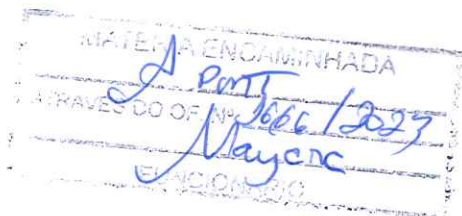 MATÉRIA ENCAMINHADA
À PMT
ATRAVÉS DO OF. Nº 3666/2023
Mayene
FUNCIONÁRIO